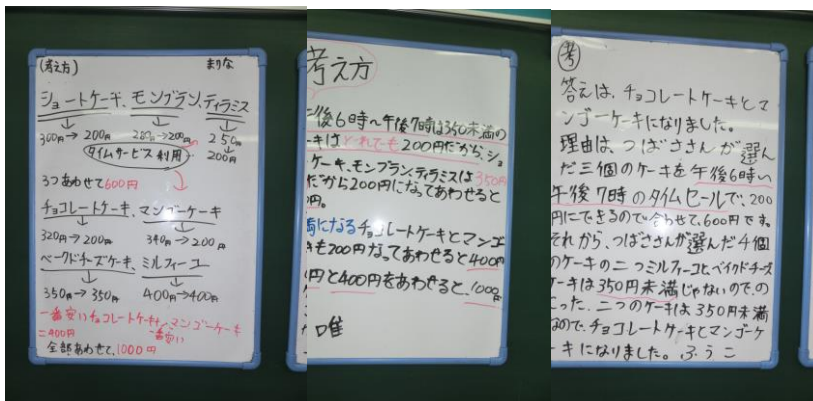 (考え方) まりな
ショートケーキ、モンブラン、ティラミス
300円→200円 280円→200円 250円
タイムサービス利用 200円
3つあわせて600円
チョコレートケーキ、マンゴーケーキ
320円→200円 340円→200円
ベークドチーズケーキ、ミルフィーユ
350円→350円 400円→400円
一番安いチョコレートケーキ+マンゴーケーキ
一番安い
=400円
全部あわせて、1000円
考え方
午後6時~午後7時は350未満の
ーキはどれでも200円だから、ショ
ケーキ、モンブラン、ティラミスは350円
だから200円になってあわせると
円。
満になるチョコレートケーキとマンゴ
キも200円なってあわせると400円
円と400円をあわせると、1000円
唯
考
答えは、チョコレートケーキとマ
ンゴーケーキになりました。
理由は、つばささんが選ん
だ三個のケーキを午後6時い
午後7時のタイムセールで、200
円にできるので合わせて、600円です。
それから、つばささんが選んだ4個
のケーキの二つミルフィーユと、ベイクドチーズ
ケーキは350円未満じゃないので、の
こった、二つのケーキは350円未満
なので、チョコレートケーキとマンゴーケ
ーキになりました。ふうこ